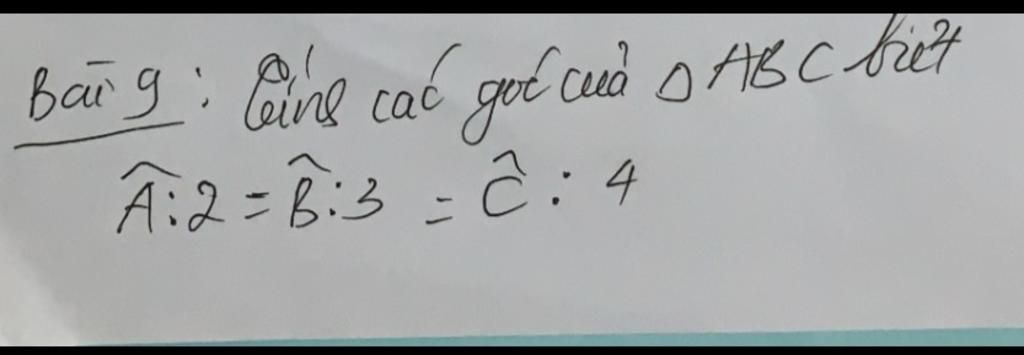 Bài 9 : Tính các góc của △ ABC biết
Â : 2 = B̂ : 3 = Ĉ : 4